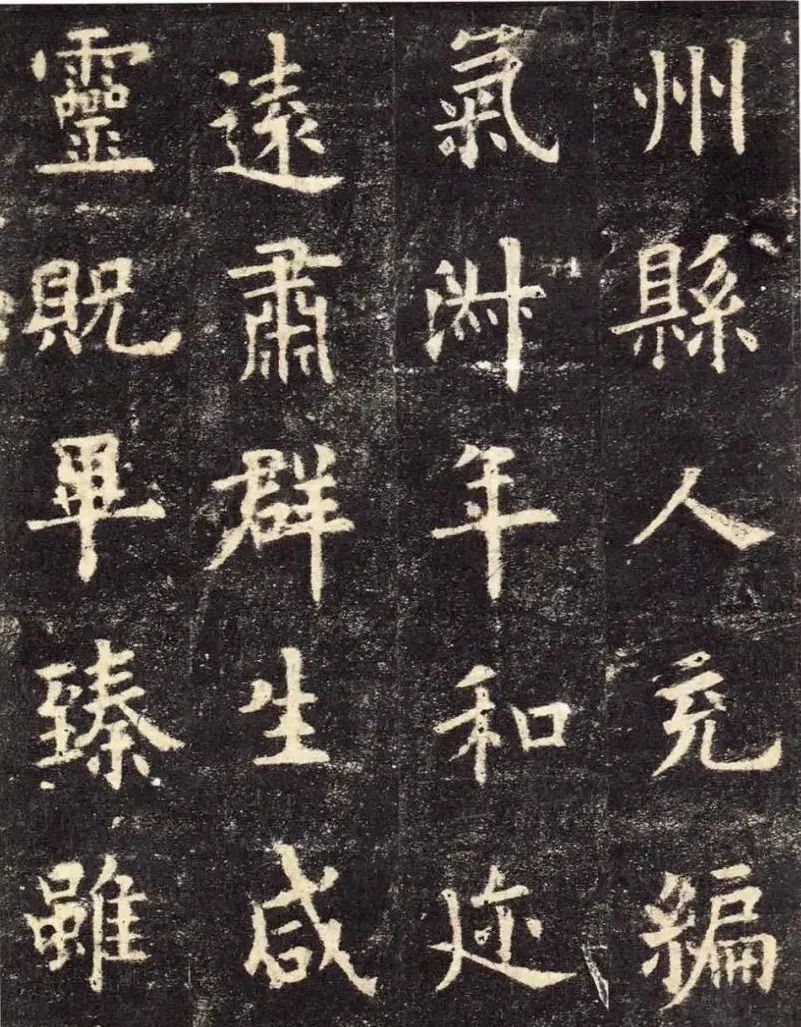 州縣人充編
氣淑年和迩
遠肅群生咸
靈貺畢臻雖